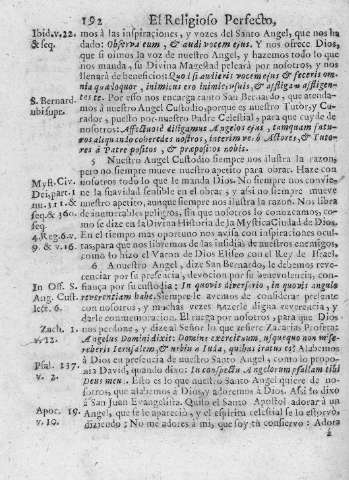 192 El Religioso Perfecto,
Ibid. v. 22. & seq.
mos à las inspiraciones, y vozes del Santo Angel, que nos ha
dado: Observa eum, & audi vocem ejus. Y nos ofrece Dios,
que si oimos la voz de nuestro Angel, y hazemos todo lo que
nos manda, su Divina Magestad peleará por nosotros, y nos
llenará de beneficios: Quod si audieris vocem ejus & feceris omnia
quæ loquor, inimicus ero inimicis tuis, & affligam affligentes
te. Por esso nos encarga tanto San Bernardo, que atenda-
S. Bernard. ubi supr.
mos à nuestro Angel Custodio, porque es nuestro Tutor, y Curador,
puesto por nuestro Padre Celestial, para que cuyde de
nosotros: Affectuosè diligamus Angelos ejus, tamquam futuros
aliquando cohæredes nostros, interim verò Actores, & Tutores
à Patre positos, & præpositos nobis.
5 Nuestro Angel Custodio siempre nos ilustra la razon;
pero no siempre mueve nuestro apetito para obrar. Haze con
Myst. Civ. Dei, part. 1
nosotros todo lo que le manda Dios. No siempre nos convie-
ne la suavidad sensible en el obrar, y assi no siempre mueve
nuestro apetito, aunque siempre nos ilustra la razon. Nos libra
seq. & 360.
de inumerables peligros, sin que nosotros lo conozcamos, co-
mo se dize en la Divina Historia de la Mystica Ciudad de Dios.
4. Reg. 6. v. 9. & v. 16.
En el tiempo mas oportuno nos avisa con inspiraciones ocul-
tas, para que nos libremos de las insidias de nuestros enemigos,
como lo hizo el Varon de Dios Eliseo con el Rey de Israel.
6 A nuestro Angel, dize San Bernardo, le debemos reve-
renciar por su presencia, devocion por su benevolencia, con-
In Off. S. Ang. Cust. lect. 6.
fiança por su custodia: In quovis diversorio, in quovis angulo
reverentiam habe. Siempre le avemos de considerar presente
con nosotros, y muchas vezes hazerle digna reverencia, y
darle conmemoracion. El ruega por nosotros, para que Dios
Zach. 1. v. 12.
nos perdone, y dize al Señor lo que refiere Zacarias Profeta:
Angelus Domini dixit: Domine exercituum, usquequo non mise-
reberis Jerusalem, & urbium Juda, quibus iratus es? Alabemos
Psal. 137. v. 2.
à Dios en presencia de nuestro Santo Angel, como lo propo-
nia David, quando dixo: In conspectu Angelorum psallam tibi
Deus meus. Esto es lo que nuestro Santo Angel quiere de no-
sotros, que alabemos à Dios, y adoremos à Dios. Assi lo dixo
à San Juan Evangelista. Quiso el Santo Apostol adorar à un
Apoc. 19. v. 10.
Angel, que se le apareció, y el espiritu celestial se lo estorvó,
diziendo: No me adores à mi, que soy tu consiervo: Adora
à